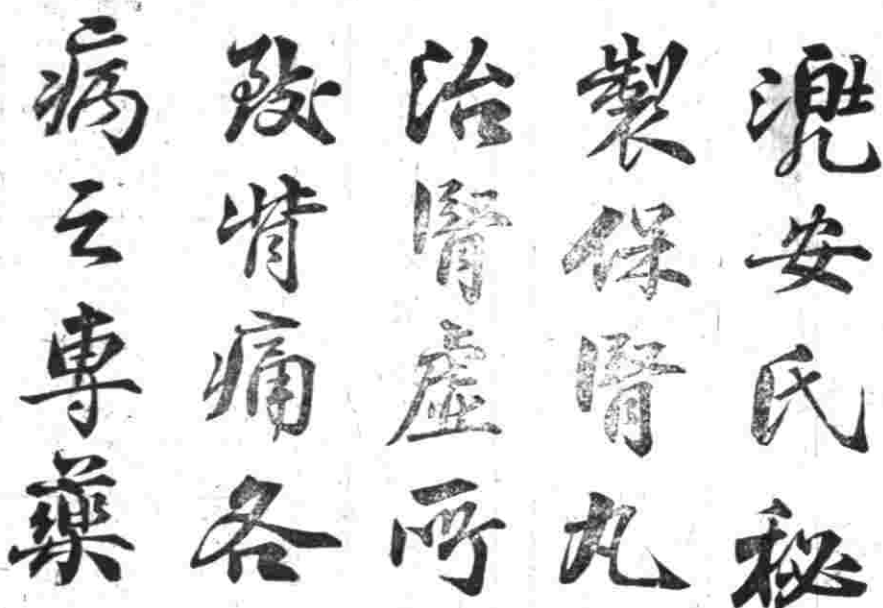 兜安氏秘
製保腎丸
治腎虛所
致背痛各
病之專藥